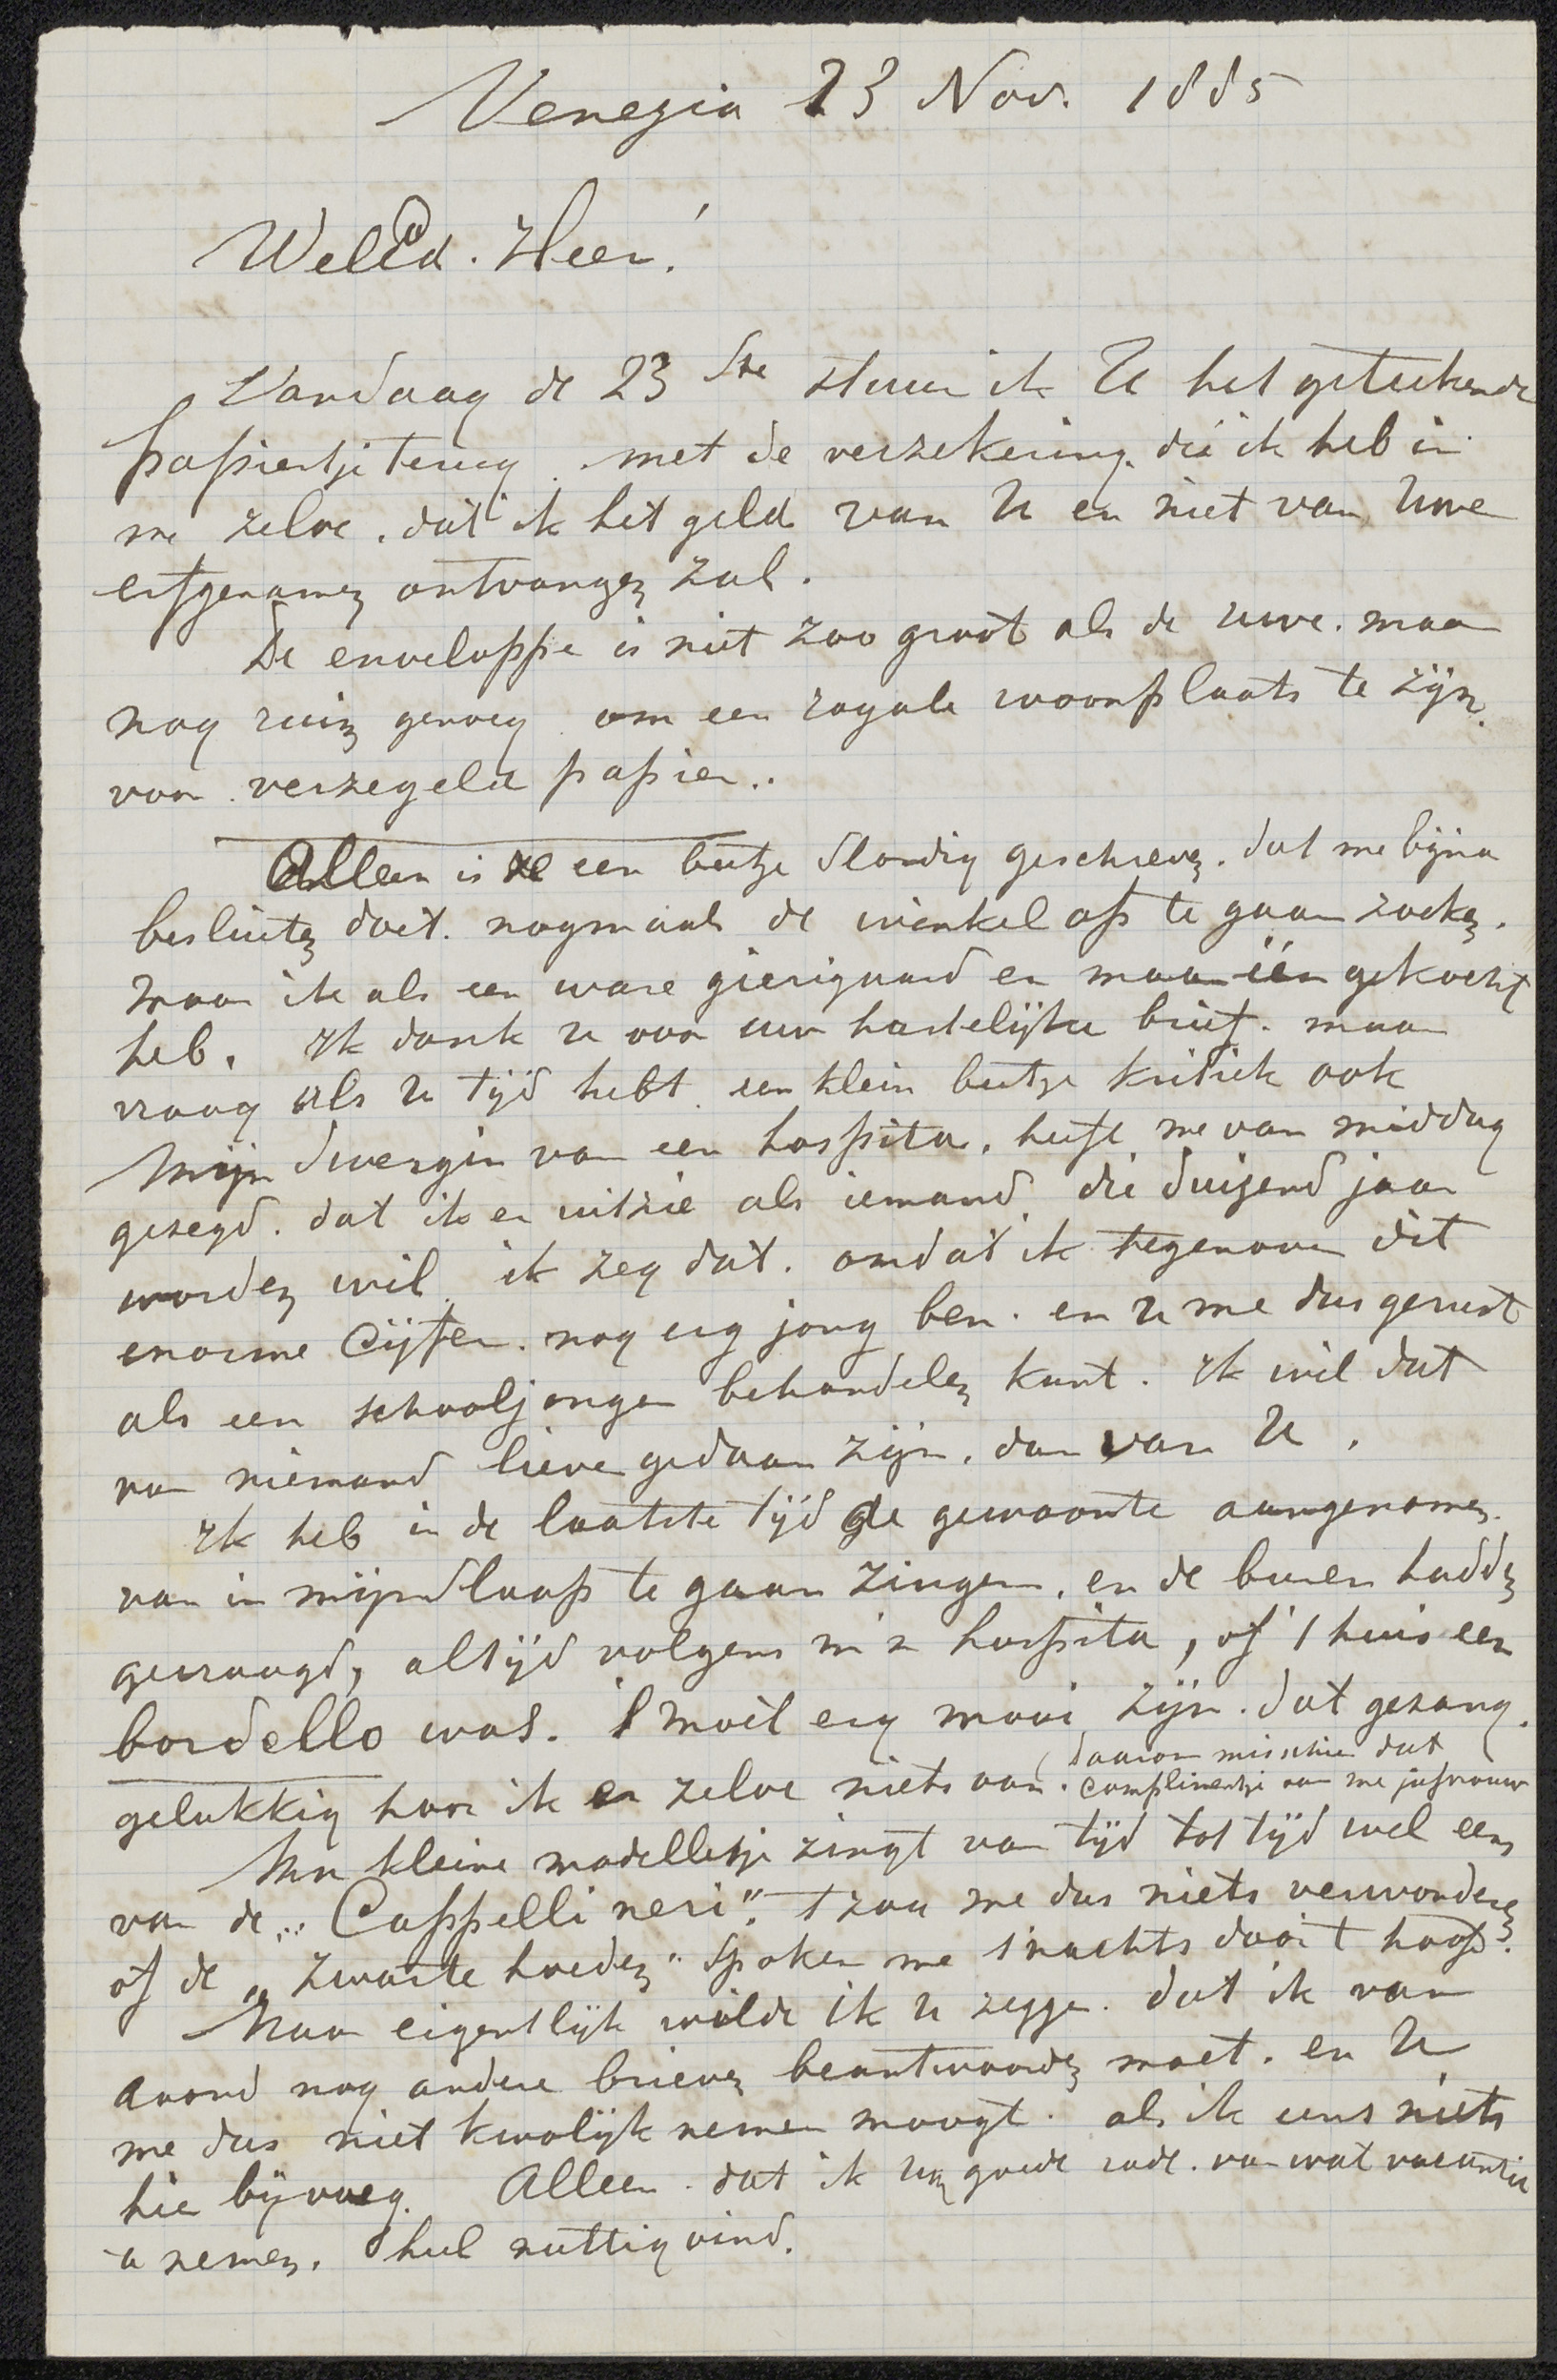 Venezia 23 Nov. 1885
WelEd. Heer!
Vandaag de 23ste stuur ik U het geteekende
papiertje terug. met de verzekering. die ik heb in
me zelve. dat ik het geld van U en niet van Uwe
erfgenamen ontvangen zal.
De enveloppe is niet zoo groot als de uwe. maar
nog ruim genoeg om een royale woonplaats te zijn.
voor verzegeld papier..
Alleen is ze een beetje slordig geschreven. dat me bijna
besluiten doet. nogmaals de winkel op te gaan zoeken.
waar ik als een ware gierigaard er maar één gekocht
heb. Ik dank U voor uw hartelijke brief. maar
vraag als U tijd hebt een klein beetje kritiek ook
Mijn dwergin van een hospita. heeft me van middag
gezegd. dat ik er uitzie als iemand die duizend jaar
worden wil. ik zeg dat. omdat ik tegenover dit
enorme cijfer. nog erg jong ben. en U me dus gerust
als een schooljongen behandelen kunt. Ik wil dat
van niemand liever gedaan zijn. dan van U.
Ik heb in de laatste tijd de gewoonte aangenomen.
van in mijn slaap te gaan zingen. en de buren hadden
gevraagd, altijd volgens m'n hospita, of 't huis een
bordello was. 't Moet erg mooi zijn. dat gezang.
gelukkig hoor ik er zelve niets van. (daarom misschien dat
complimentje van me jufvrouw
Mn kleine modelletje zingt van tijd tot tijd wel eens
van de „Cappelli neri". 't zou me dus niets verwonderen
of de „zwarte hoeden" spoken me 's nachts door 't hoofd.
Maar eigentlijk wilde ik U zeggen. dat ik van
avond nog andere brieven beantwoorden moet. en U
me dus niet kwalijk nemen moogt. als ik eens niets
hier bijvoeg. Alleen. dat ik Uw goede rade. van wat vacantie
te nemen. heel nuttig vind.